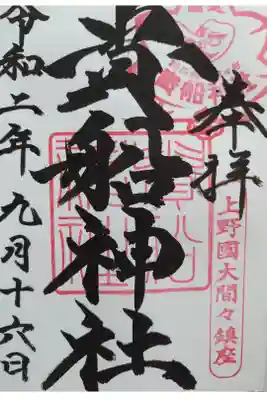 奉拝
上野國大間々鎮座
貴船神社
令和二年九月十六日